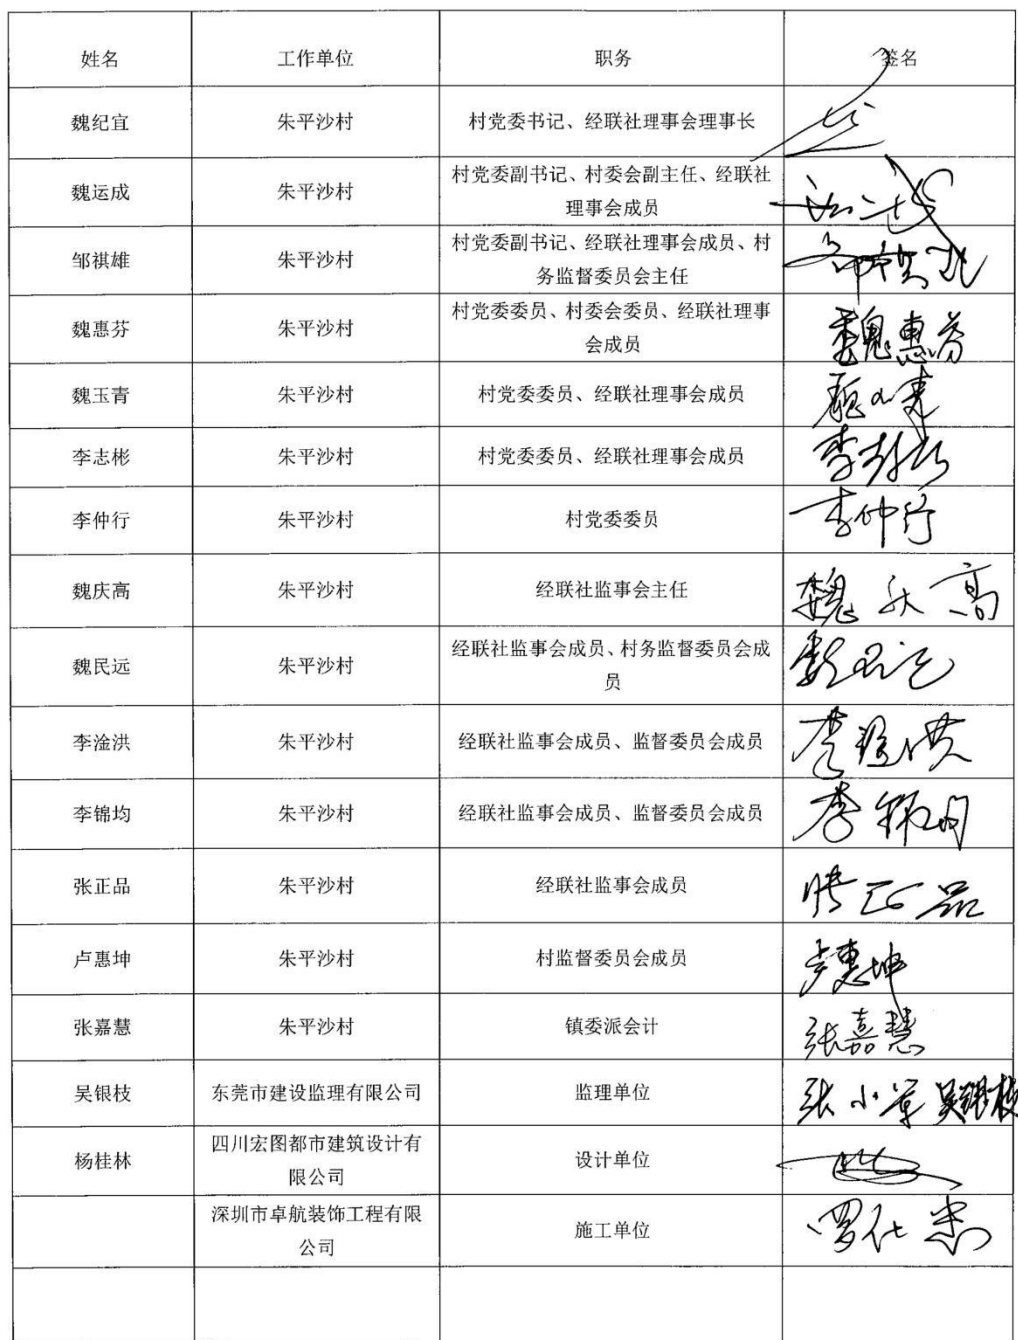 姓名 工作单位 职务 签名
魏纪宜 朱平沙村 村党委书记、经联社理事会理事长
魏运成 朱平沙村 村党委副书记、村委会副主任、经联社
理事会成员
邹祺雄 朱平沙村 村党委副书记、经联社理事会成员、村
务监督委员会主任
魏惠芬 朱平沙村 村党委委员、村委会委员、经联社理事 魏惠芬
会成员
魏玉青 朱平沙村 村党委委员、经联社理事会成员
李志彬 朱平沙村 村党委委员、经联社理事会成员
李仲行 朱平沙村 村党委委员 李仲行
魏庆高 朱平沙村 经联社监事会主任 魏庆高
魏民远 朱平沙村 经联社监事会成员、村务监督委员会成
员
李淦洪 朱平沙村 经联社监事会成员、监督委员会成员
李锦均 朱平沙村 经联社监事会成员、监督委员会成员 李锦均
张正品 朱平沙村 经联社监事会成员 张正品
卢惠坤 朱平沙村 村监督委员会成员 卢惠坤
张嘉慧 朱平沙村 镇委派会计 张嘉慧
吴银枝 东莞市建设监理有限公司 监理单位 吴银枝
杨桂林 四川宏图都市建筑设计有 设计单位
限公司
深圳市卓航装饰工程有限 施工单位
公司